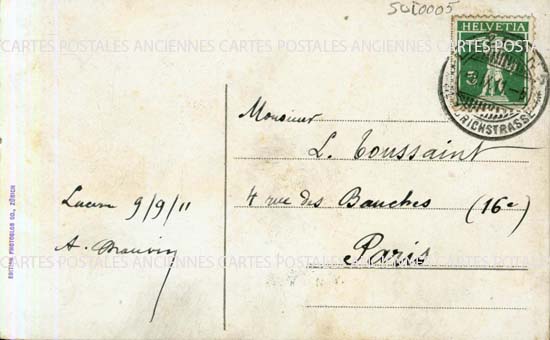 SUI0005
HELVETIA
CARTES POSTALES ANCIENNES CARTES POSTALES ANCIENNES CARTES POSTALES
Monsieur
L. Toussaint
4 rue des Bauches (16e)
Paris
Lucerne 9/9/11
A.
CARTES POSTALES ANCIENNES CARTES POSTALES ANCIENNES CARTES POSTALES
EDITION PHOTOGLOB CO., ZÜRICH